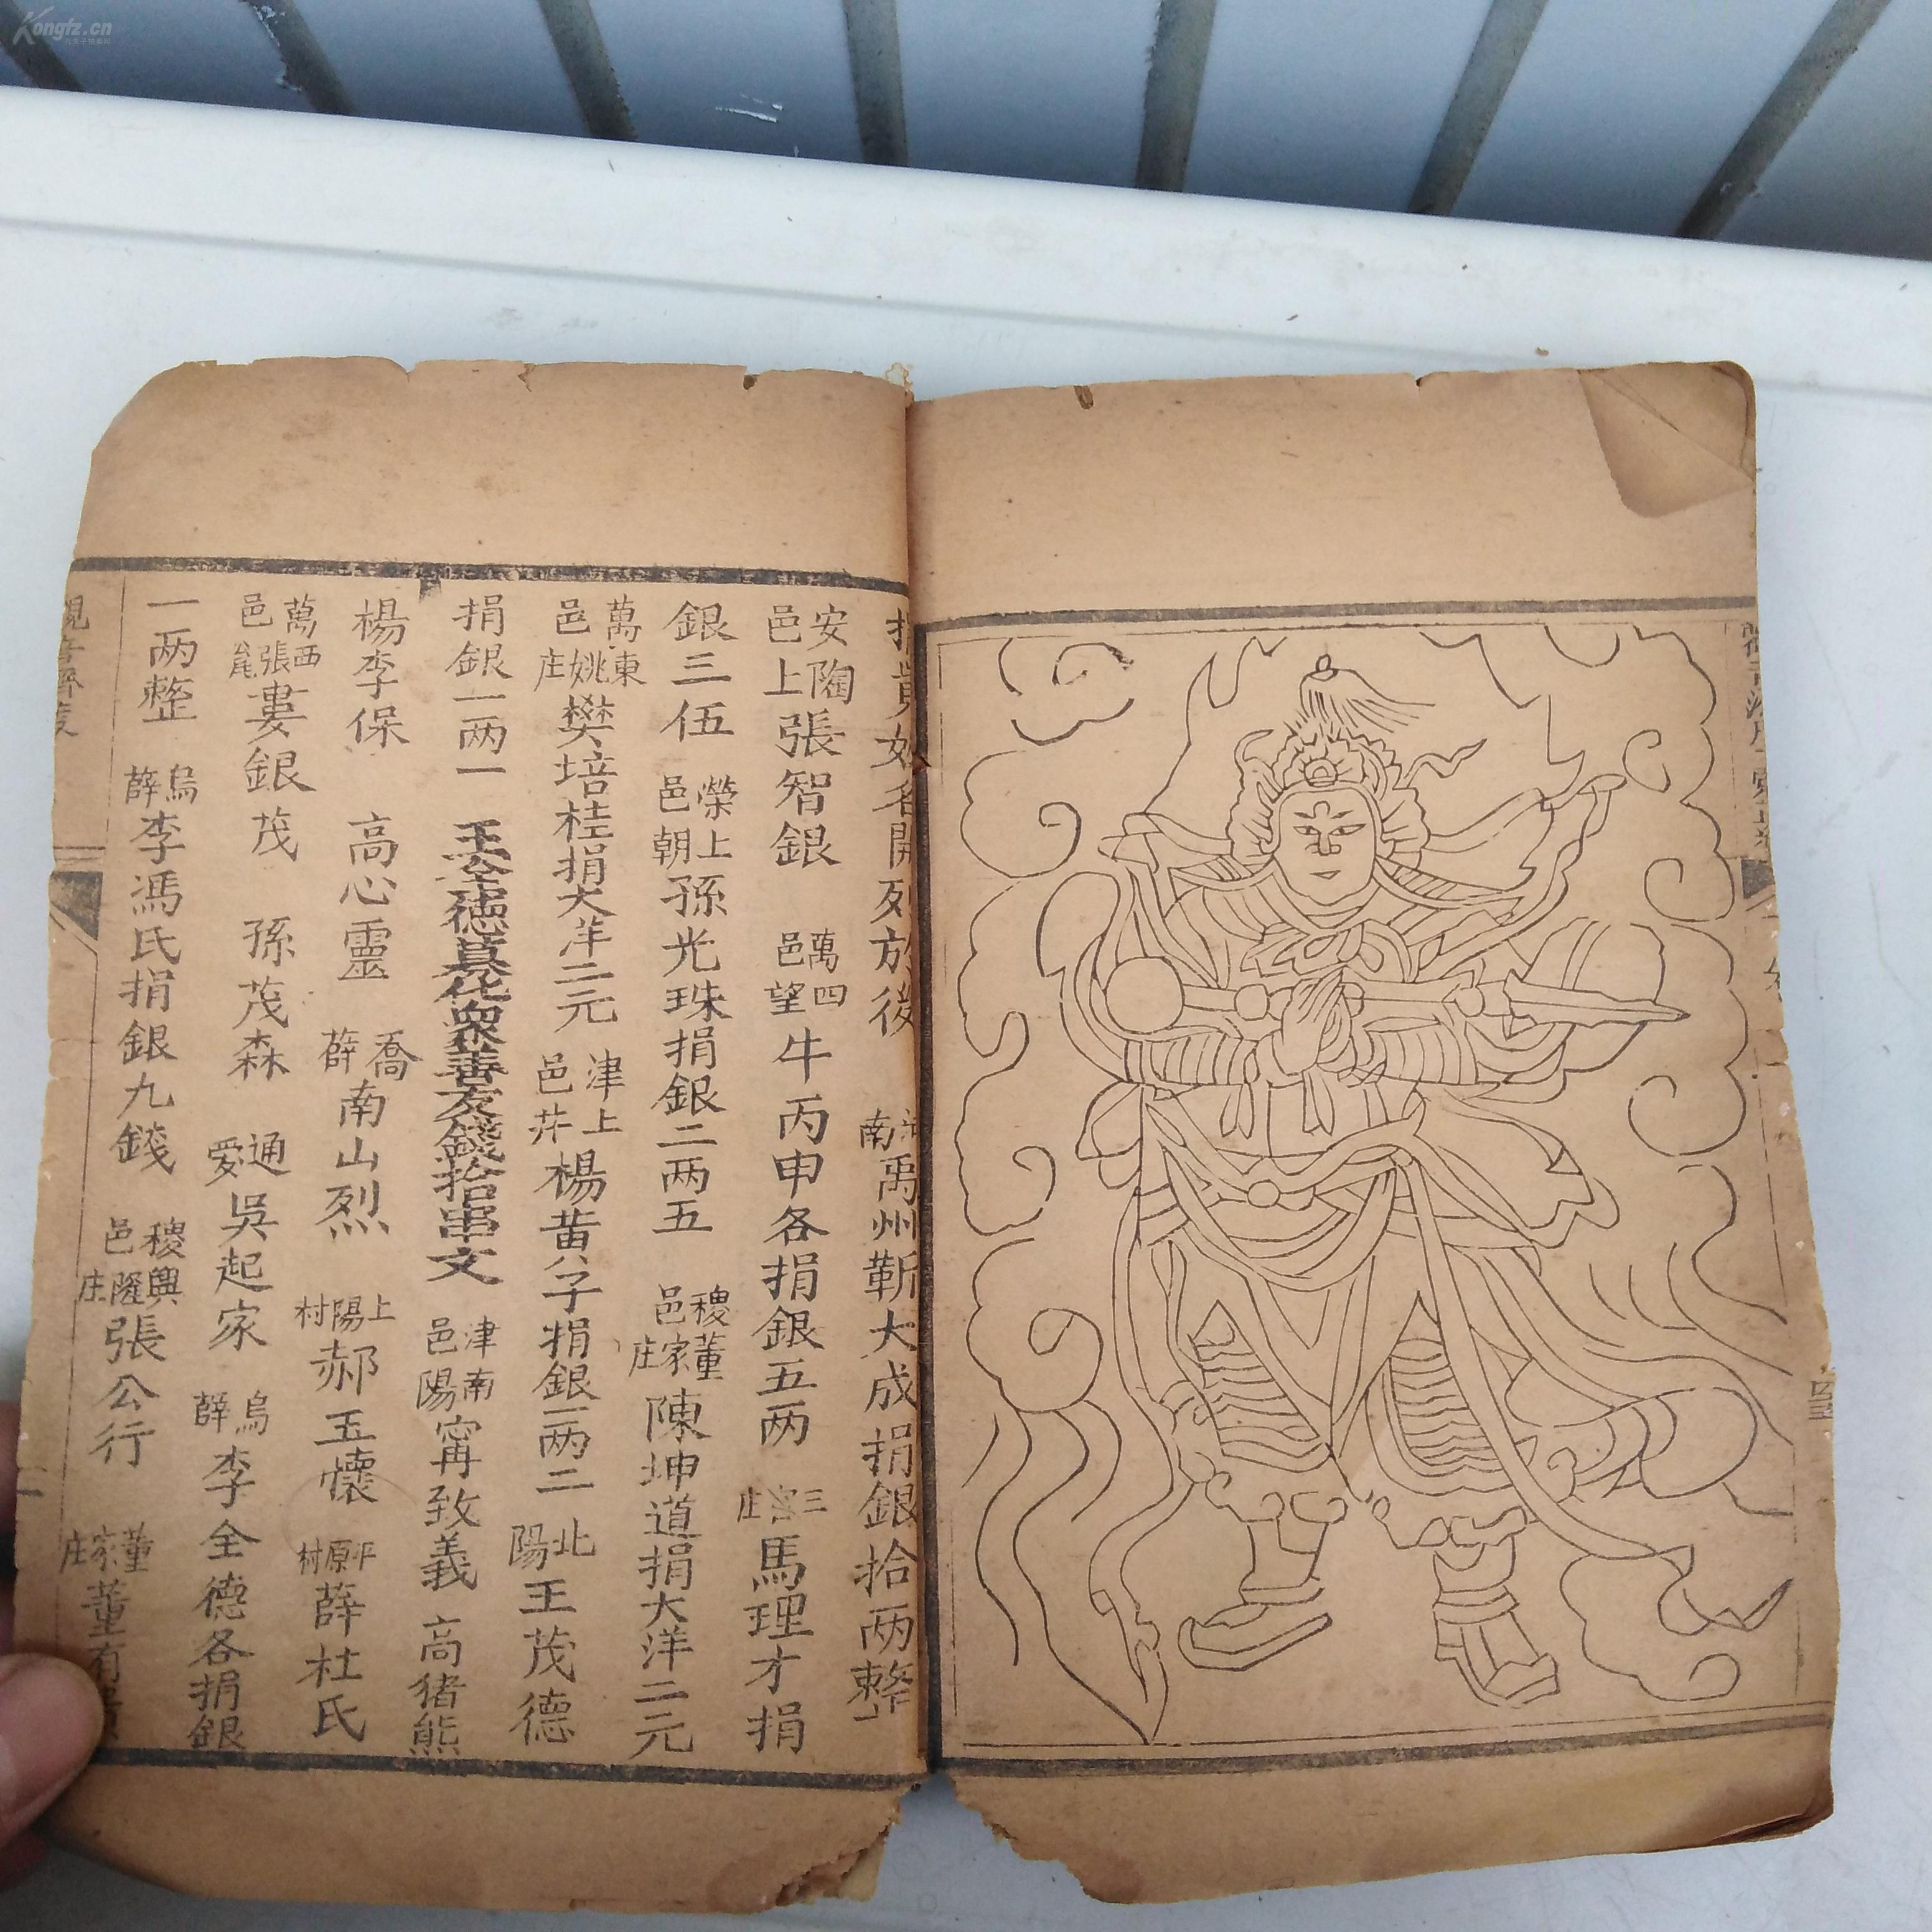 Kongfz.cn
捐貲姓名開列於後 河南禹州靳大成捐銀拾两整
安邑陶上張智銀 萬邑四望牛丙申各捐銀五两 三宮庄馬理才捐
銀三伍 榮邑上朝孫光珠捐銀二两五 稷邑董家庄陳坤道捐大洋二元
萬邑東姚庄樊培桂捐大洋二元 津邑上井楊黄子捐銀一两二 北陽王茂德
捐銀一两一 王谷德募化衆善友錢拾串文 津邑南陽甯致義 高猪熊
楊李保 高心靈 喬薛南山烈 上陽村郝玉懷 平原村薛杜氏
萬邑西張瓮婁銀茂 孫茂森 通愛吳起家 烏薛李全德各捐銀
一两整 烏薛李馮氏捐銀九錢 稷邑興隆庄張公行 董家庄董有
觀音濟度